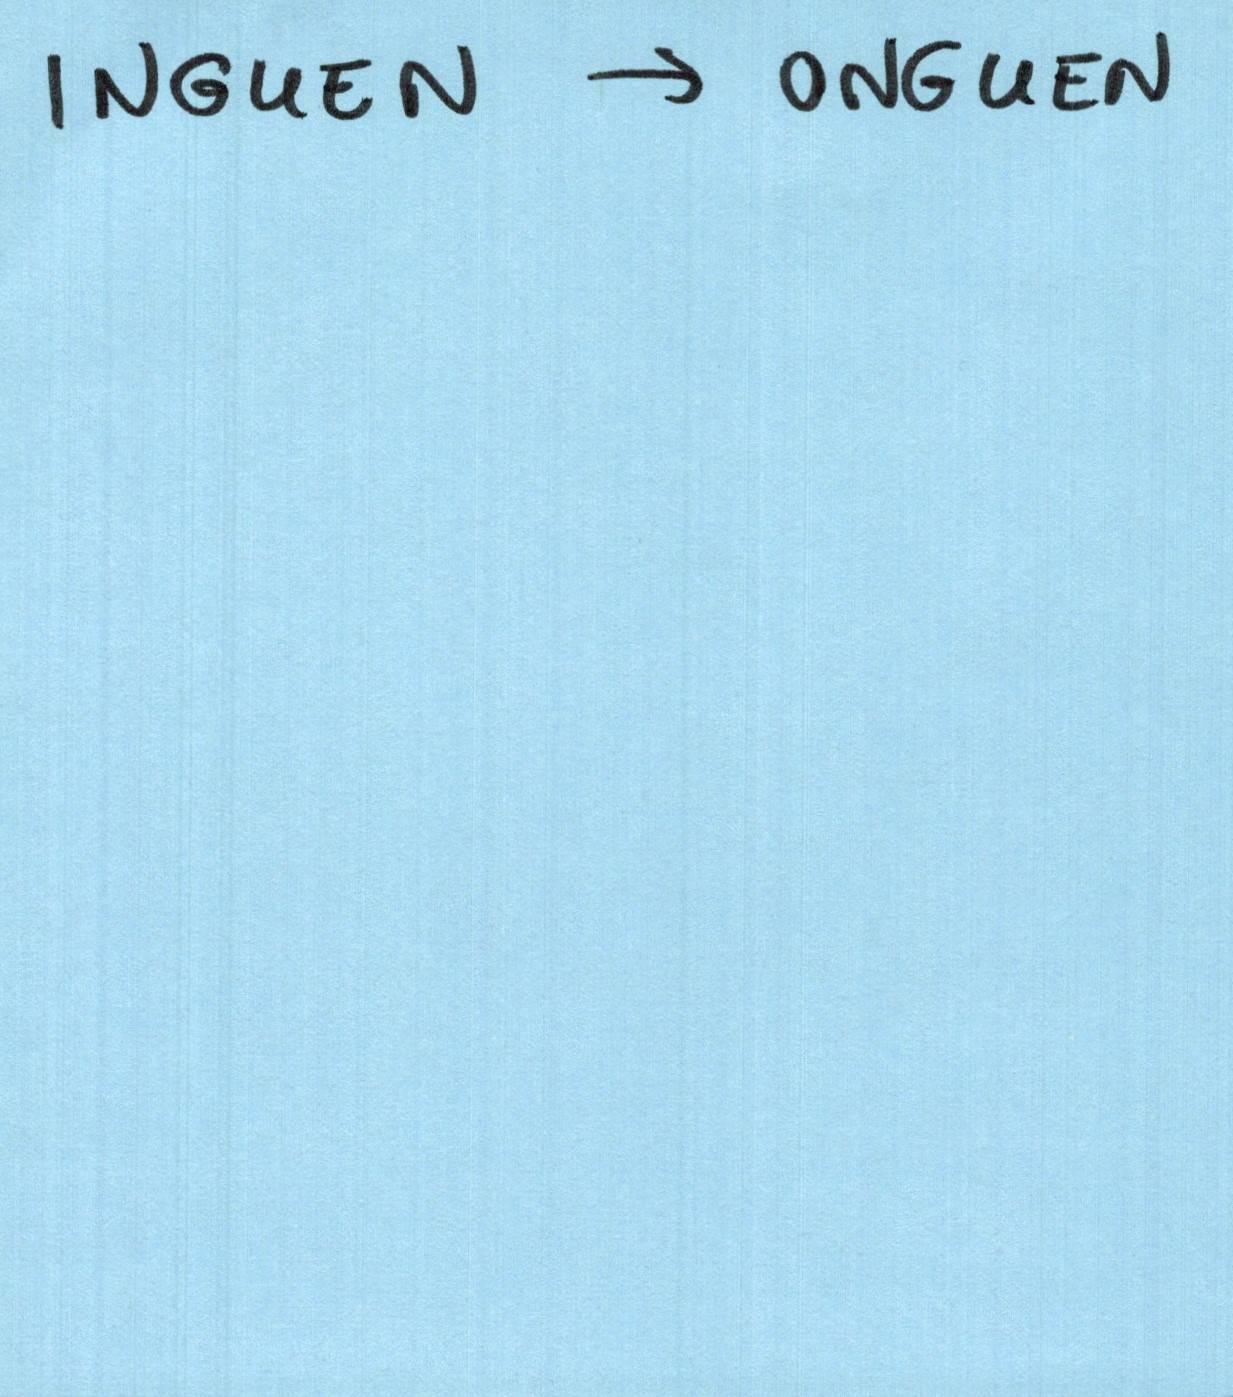 INGUEN → ONGUEN